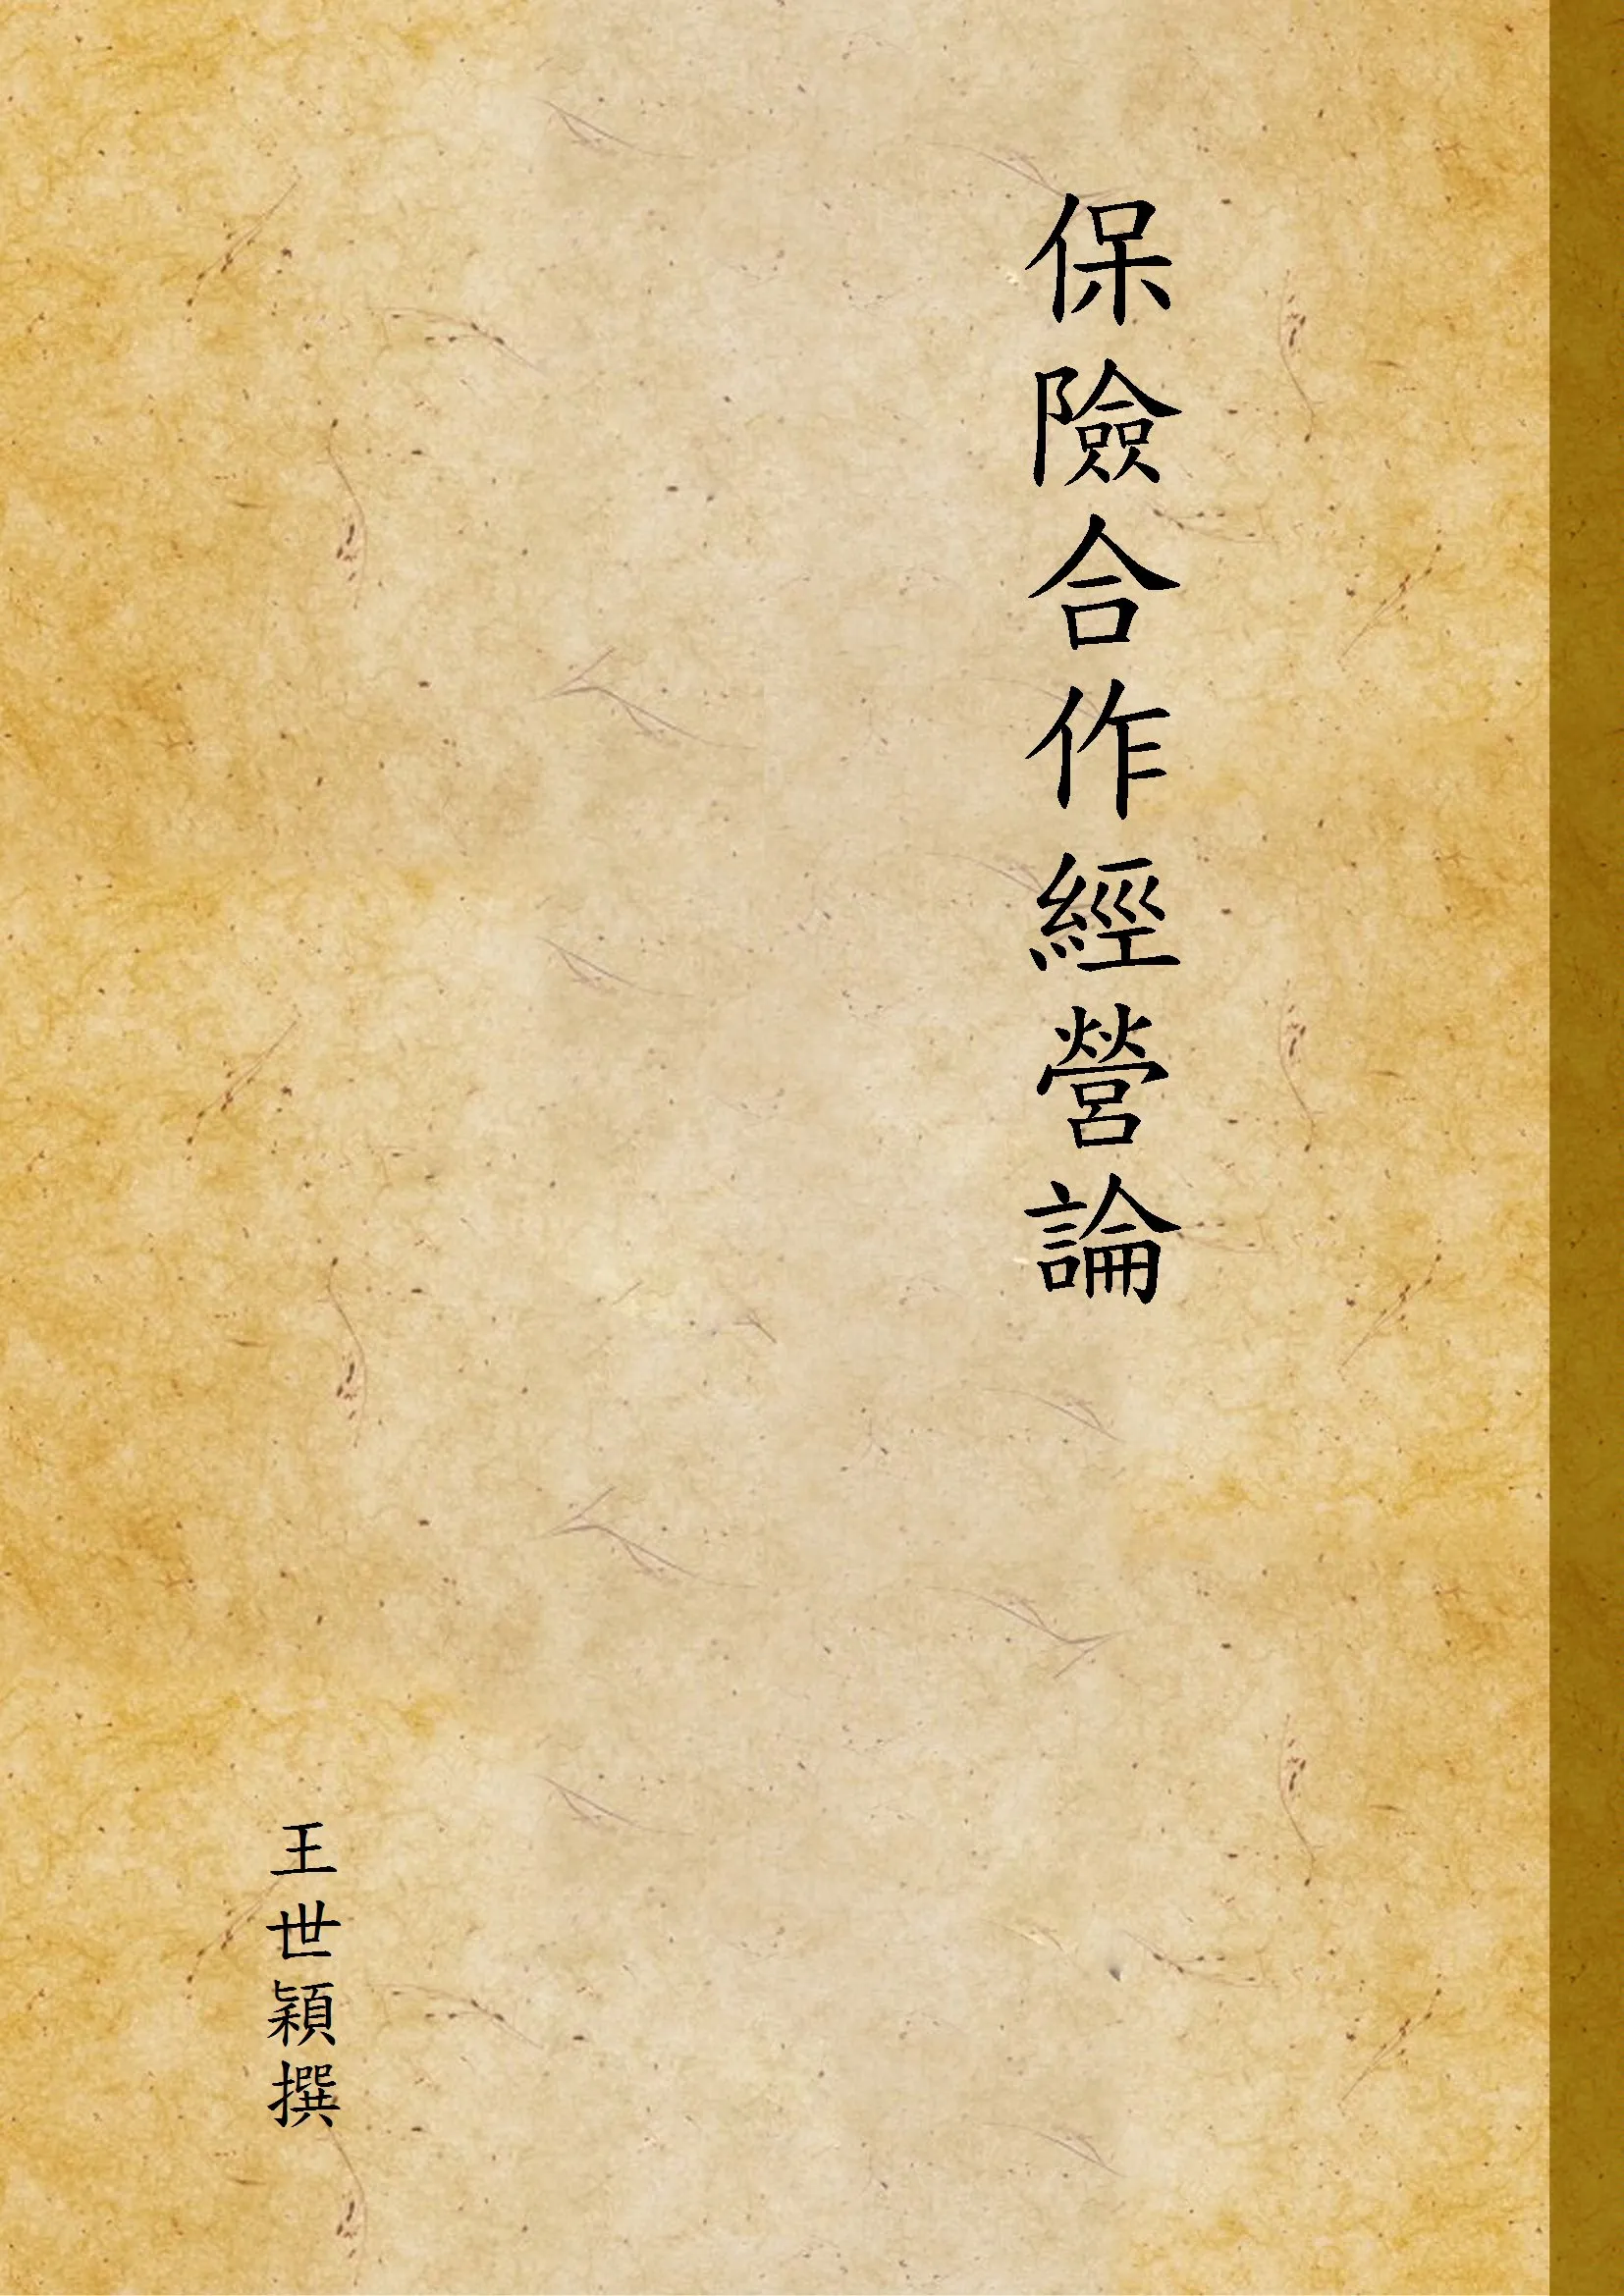 保險合作經營論
王世穎撰